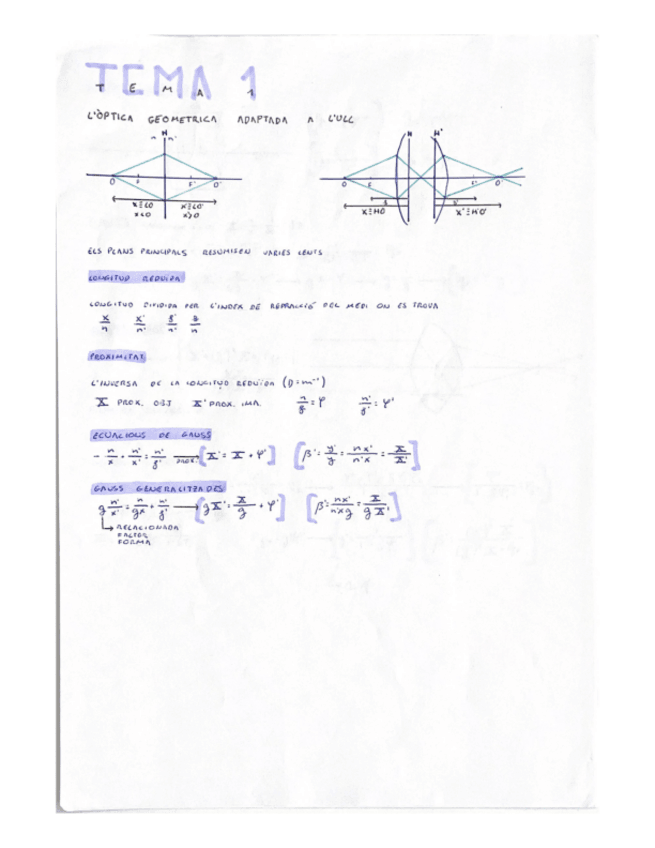 TEMA 1
T E M A 1
L'ÒPTICA GEOMETRICA ADAPTADA A L'ULL
H
n n'
O F F' O'
x≡LO x'≡LO'
x<0 x'>0
H H'
O F F' O'
x≡HO x'≡H'O'
ELS PLANS PRINCIPALS RESUMISEN VARIES LENTS
LONGITUD REDUIDA
LONGITUD DIVIDIDA PER L'INDEX DE REFRACCIÓ DEL MEDI ON ES TROVA
x/n x'/n' f'/n' f/n
PROXIMITAT
L'INVERSA DE LA LONGITUD REDUÏDA (D=m⁻¹)
X PROX. OBJ X' PROX. IMA. n/f = φ n'/f' = φ'
ECUACIONS DE GAUSS
- n/x + n'/x' = n'/f' → PROX. [X' = X + φ'] [β' = y'/y = nx'/n'x = X/X']
GAUSS GENERALITZADES
g n'/x' = n/gx + n'/f' → [gX' = X/g + φ'] [β' = nx'/n'xg = X/gX']
↳ RELACIONADA
FACTOR
FORMA